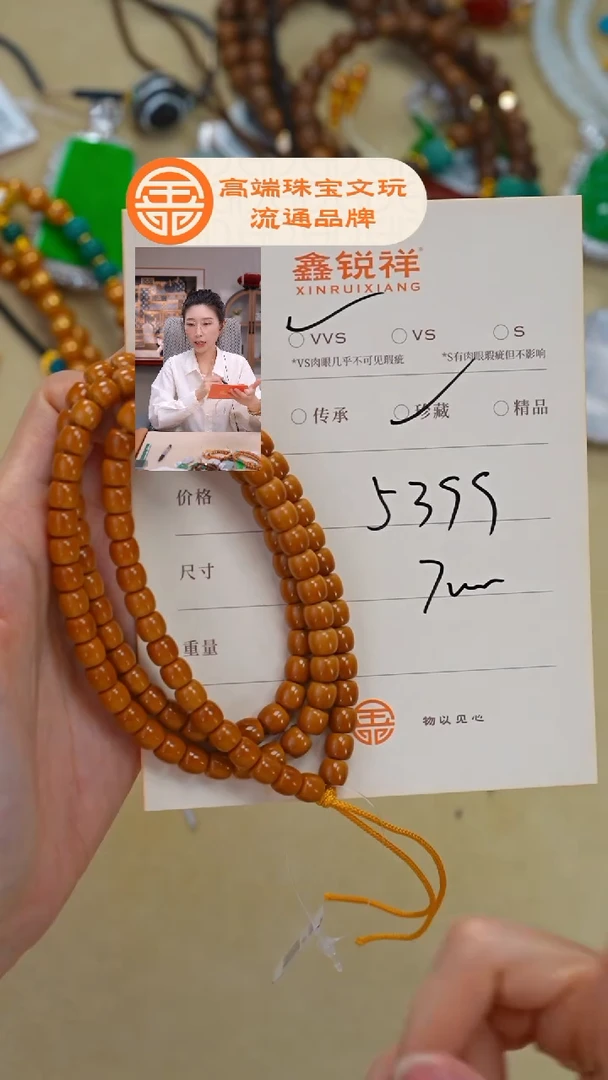 高端珠宝文玩
流通品牌
鑫锐祥
XINRUIXIANG
VVS VS S
*VS肉眼几乎不可见瑕疵 *S有肉眼瑕疵但不影响
传承 珍藏 精品
价格 5399
尺寸 7mm
重量
物以见心